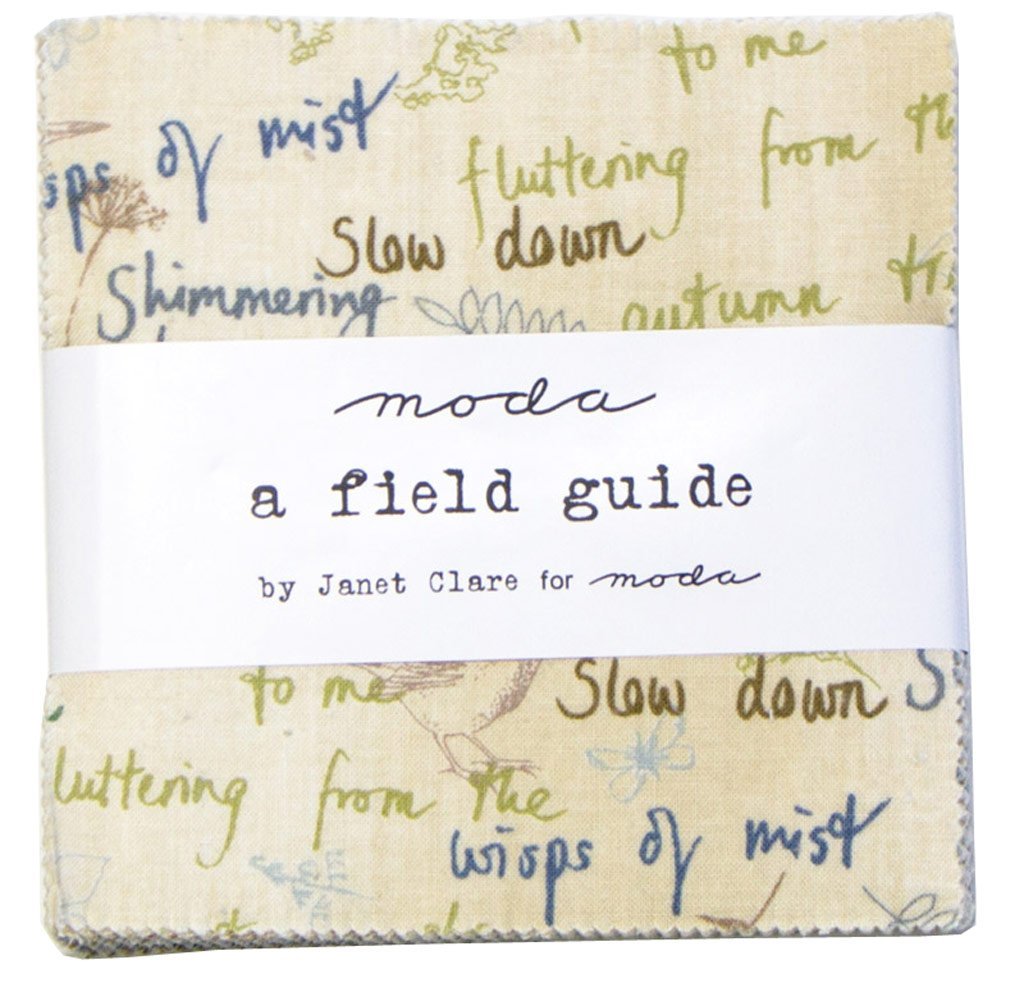 to me
wisps of mist
fluttering from the
Slow down
Shimmering
autumn
moda
a field guide
by Janet Clare for moda
to me
Slow down
S
luttering from the
wisps of mist